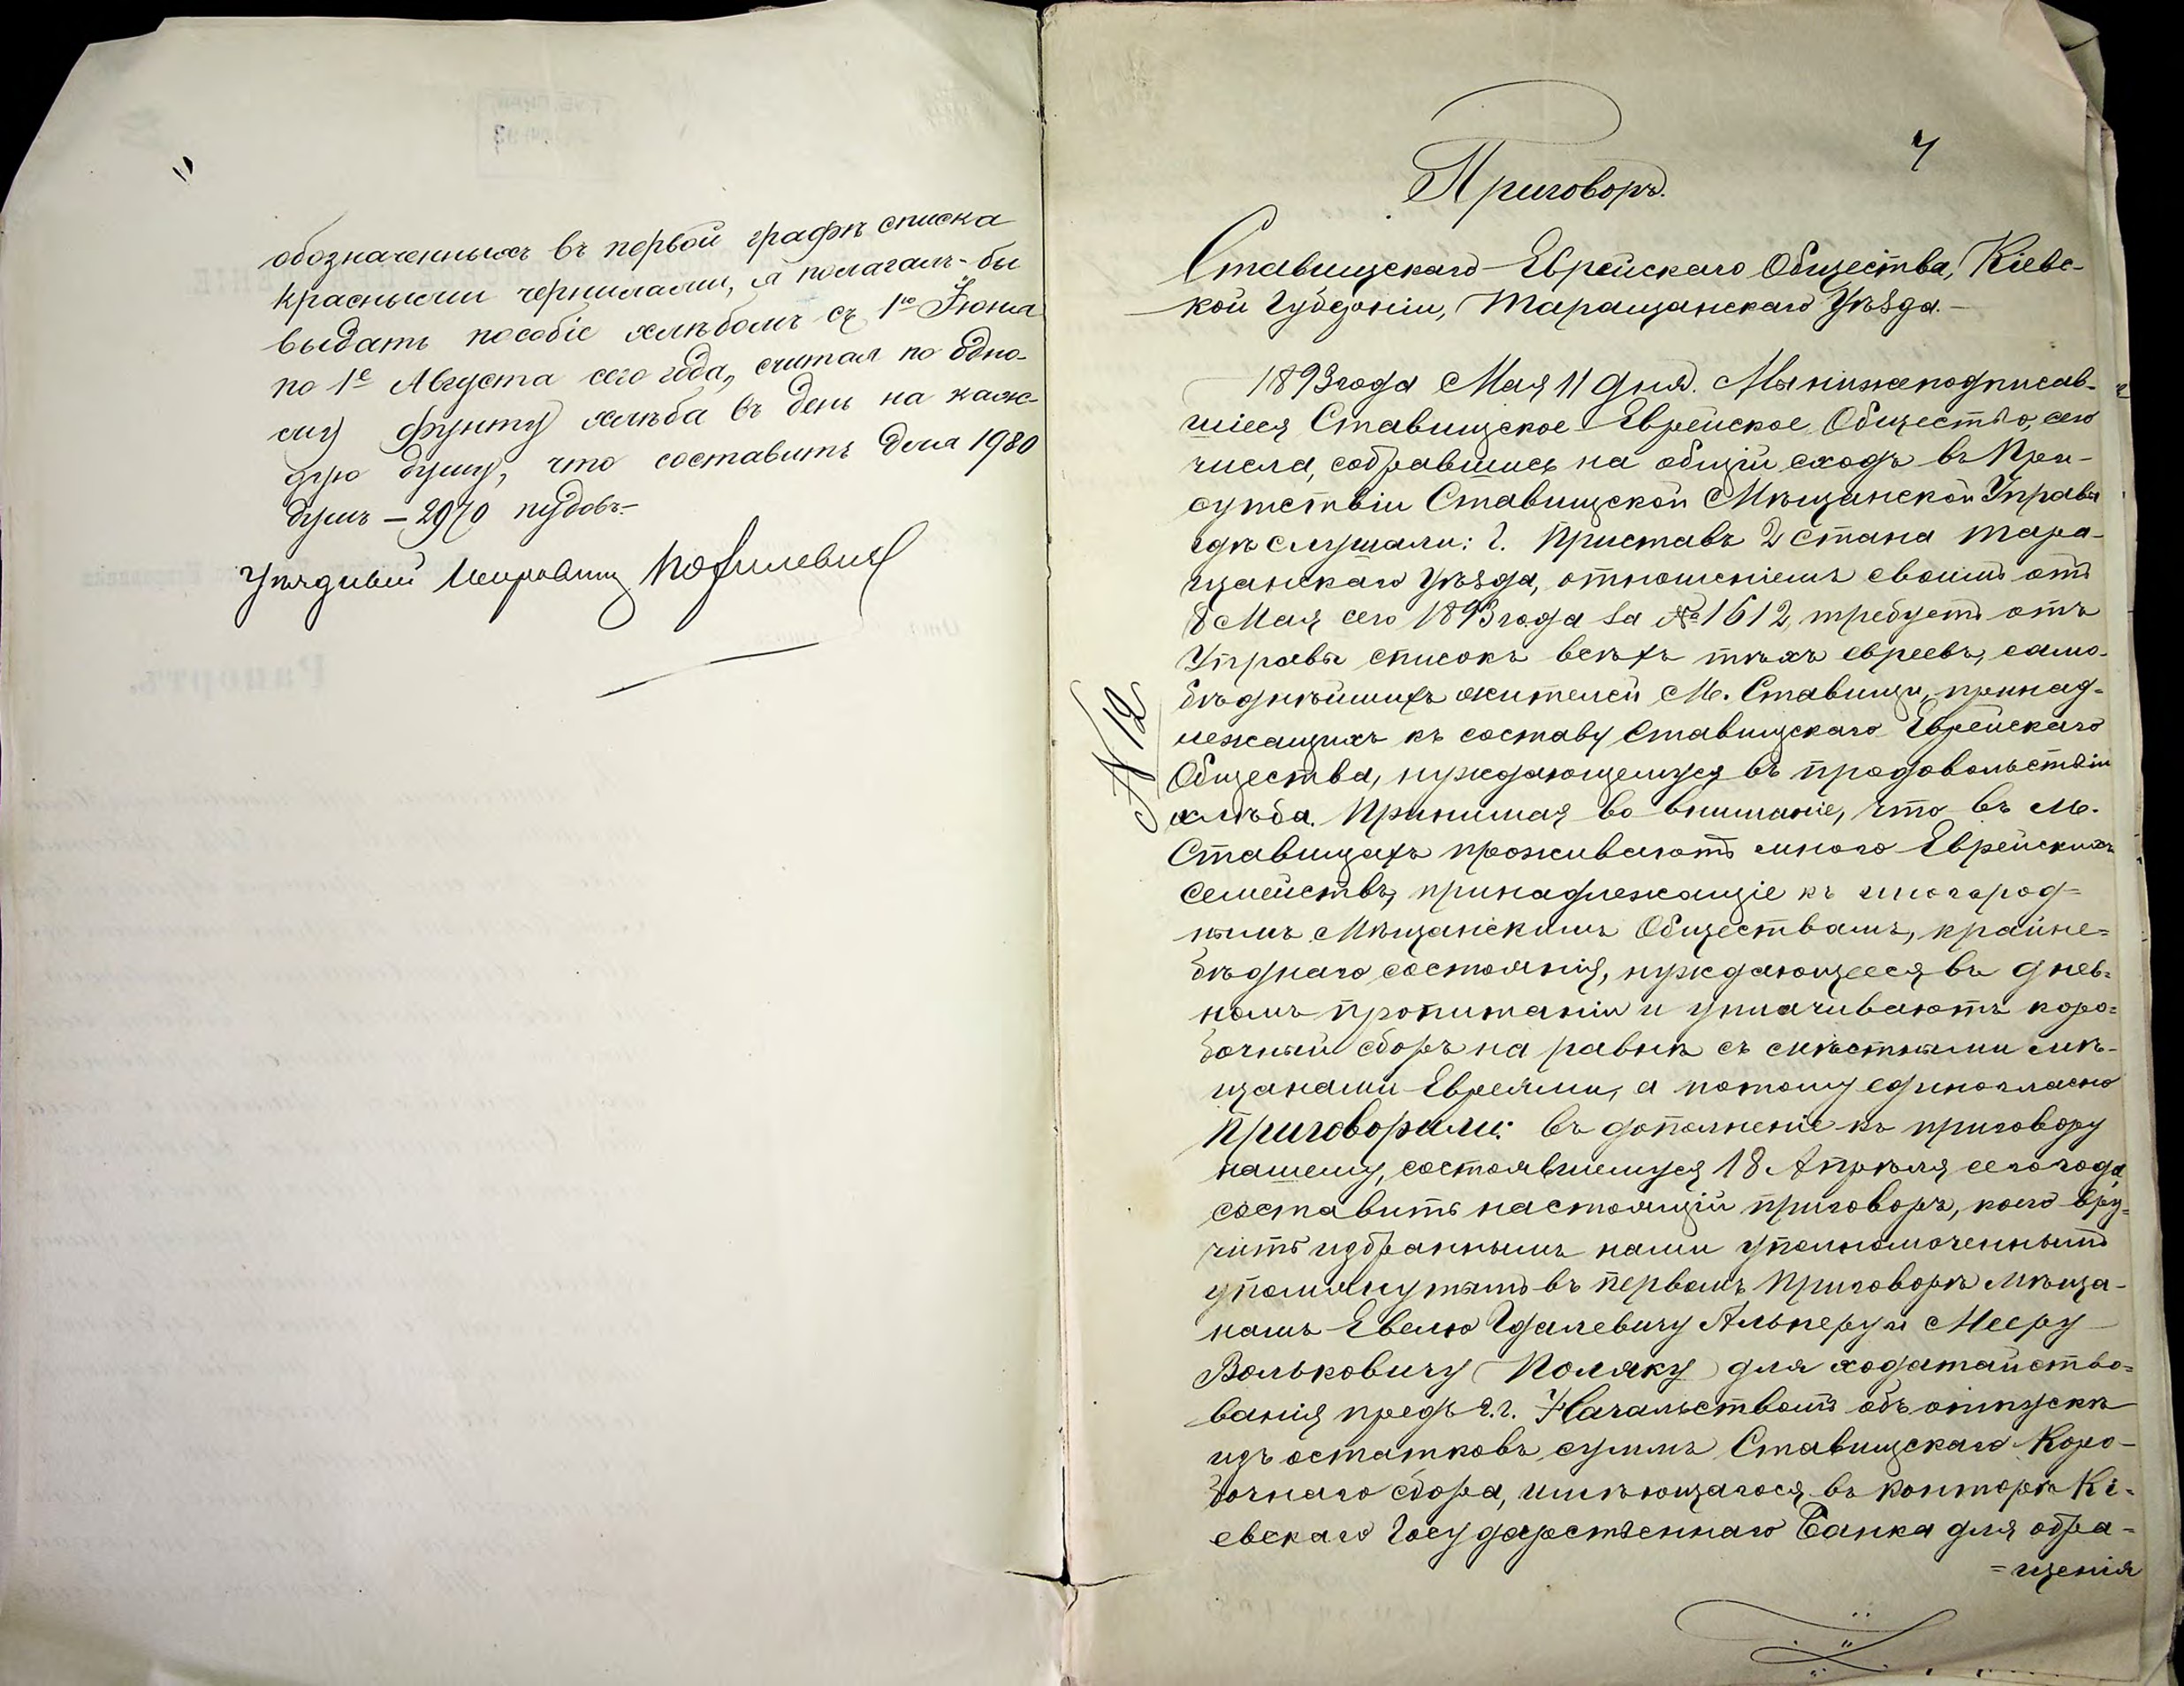 обозначенныхъ въ первой графѣ списка
красными чернилами, я полагалъ-бы
выдать пособіе хлѣбомъ съ 1го Іюня
по 1е Августа сего года, считая по одно-
му фунту хлѣба въ день на каж-
дую душу, что составитъ для 1980
душъ – 2970 пудовъ.-
Уѣздный
7
Приговоръ.
Ставищскаго Еврейскаго Общества, Кіевс-
кой Губерніи, Таращанскаго Уѣзда.-
1893 года Мая 11 дня. Мы нижеподписав-
шіеся Ставищское Еврейское Общество, сего
числа, собравшись на общій сходъ въ При-
сутствіи Ставищской Мѣщанской Управы
гдѣ слушали: Г. Приставъ 2 стана Тара-
щанскаго Уѣзда, отношеніемъ своимъ отъ
8 Мая сего 1893 года за № 1612, требуетъ отъ
Управы списокъ всѣхъ тѣхъ евреевъ, само-
бѣднѣйшихъ жителей М. Ставищъ, принад-
лежащихъ къ составу Ставищскаго Еврейскаго
Общества, нуждающемуся въ продовольствіи
хлѣба. Принимая во вниманіе, что въ М.
Ставищахъ проживаютъ много Еврейскихъ
семействъ, принадлежащіе къ иногород=
нымъ Мѣщанскимъ Обществамъ, крайне=
бѣднаго состоянія, нуждающееся въ днев=
номъ пропитаніи и уплачиваютъ коро=
бочный сборъ на равнѣ съ мѣстными мѣ-
щанами Евреями, а потому единогласно
Приговорили: въ дополненіе къ приговору
нашему, состоявшемуся 18 Апрѣля сего года,
составить настоящій приговоръ, коего вру=
чить избраннымъ нами уполномоченнымъ
упомянутымъ въ первомъ Приговорѣ мѣща-
намъ Евелю Гдалевичу Альперу и Мееру
Вольковичу Поляку для ходатайство=
ванія предъ г.г. Начальствомъ объ отпускѣ
изъ остатковъ суммъ Ставищскаго Коро-
бочнаго сбора, имѣющагося въ конторѣ Кі-
евскаго Государственнаго Банка для обра=
=щенія
№ 12